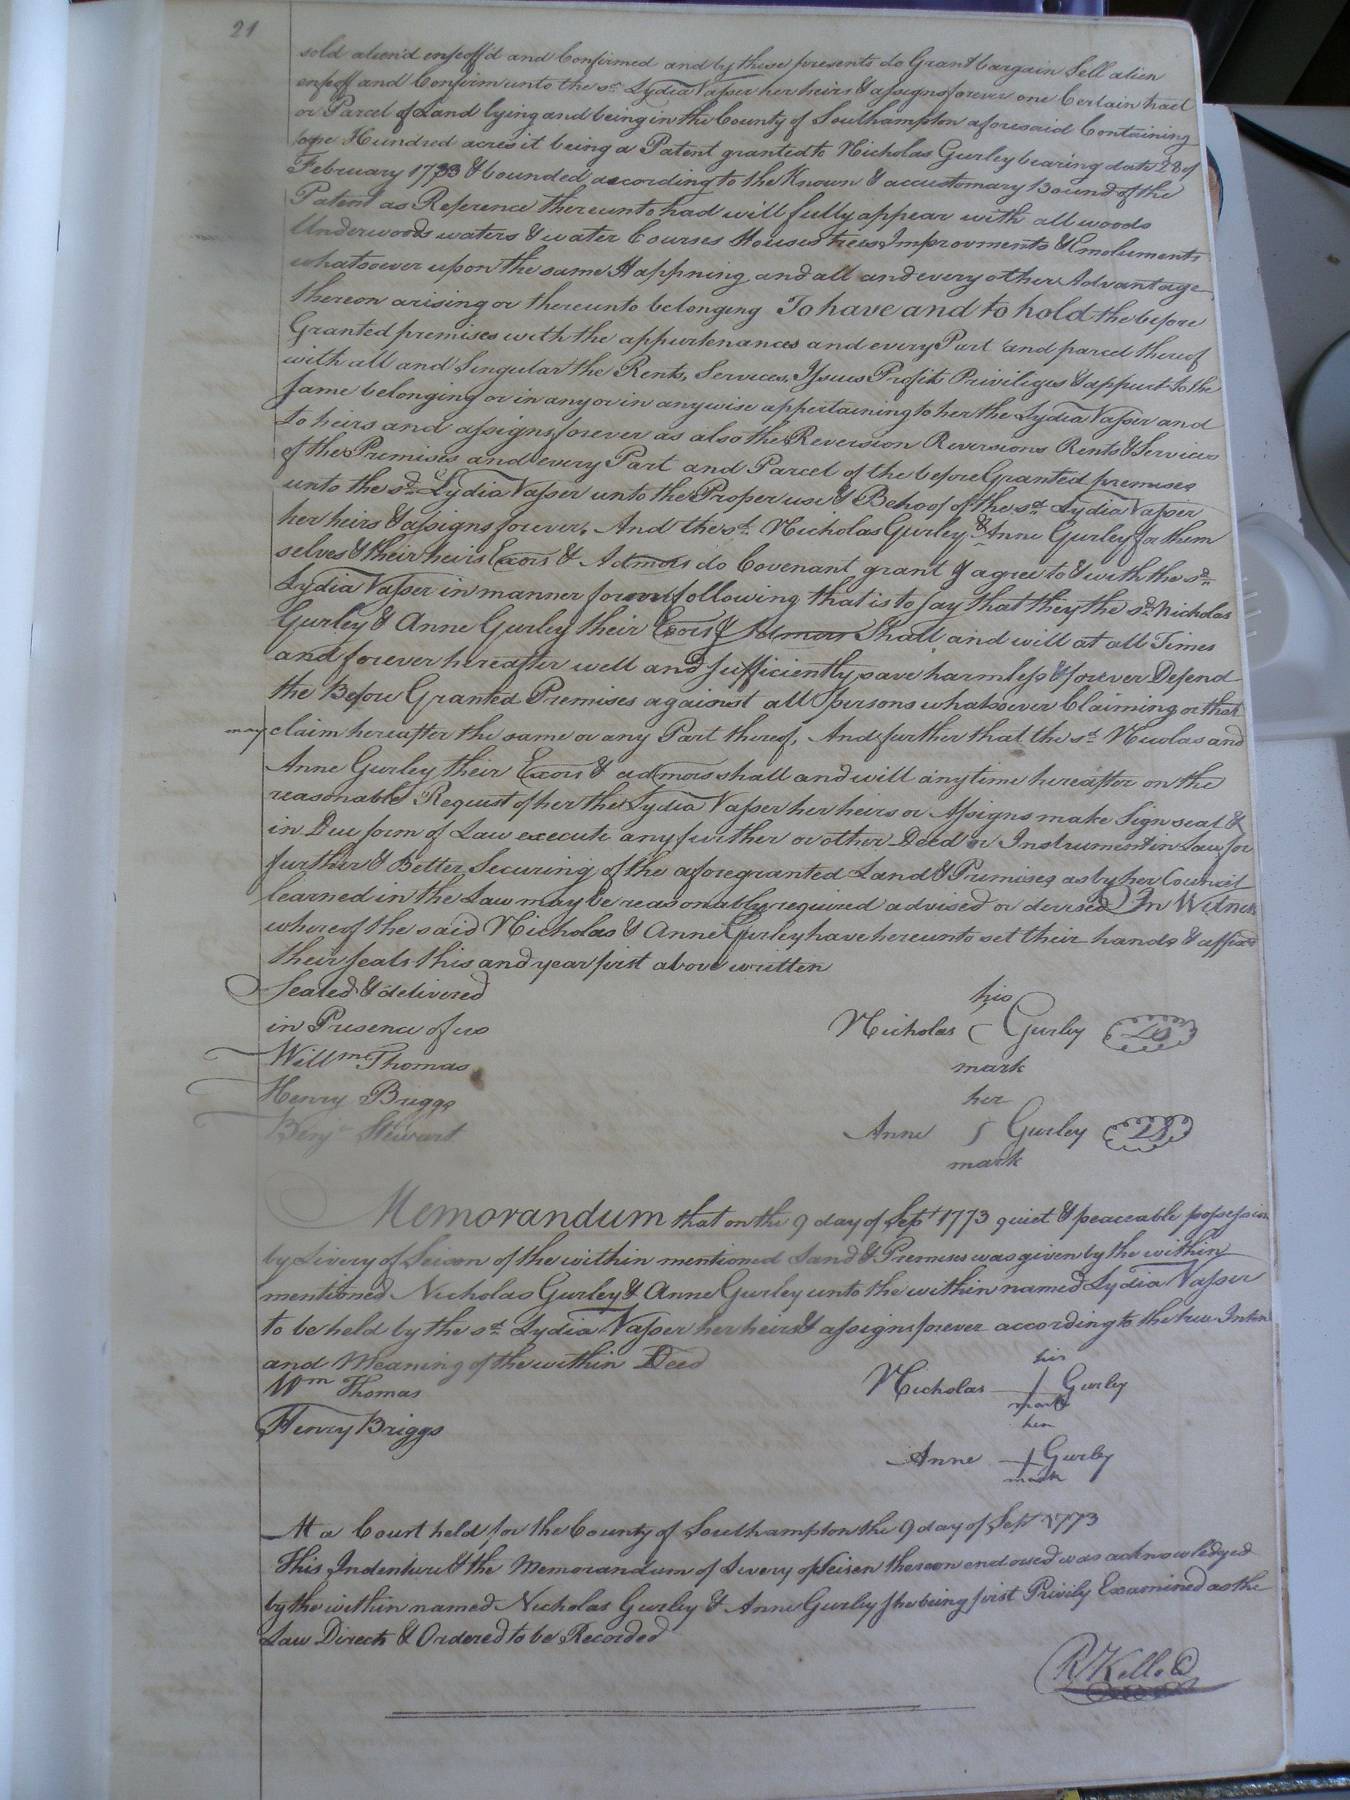 21
sold alien'd enfeoff'd and Confirmed and by these presents do Grant bargain Sell alien
enfeoff and Confirm unto the sd. Lydia Vasser her heirs & assigns forever one Certain tract
or Parcel of Land lying and being in the County of Southampton aforesaid Containing
Hundred acres it being a Patent granted to Nicholas Gurley bearing date 28 of
February 1733 & bounded according to the Known & accustomary Bounds of the
Patent as Reference thereunto had will fully appear with all woods
Underwoods waters & water Courses Houses trees Improvments & Emoluments
whatsoever upon the same Happning and all and every other Advantage
thereon arising or thereunto belonging To have and to hold the before
Granted premises with the appurtenances and every Part and parcel thereof
with all and Singular the Rents, Services, Issues Profits Priviliges & appurt to the
same belonging or in any or in anywise appertaining to her the Lydia Vasser and
to heirs and assigns forever as also the Reversion Reversions Rents & Services
of the Premises and every Part and Parcel of the before Granted premises
unto the sd. Lydia Vasser unto the Proper use & Behoof of the sd. Lydia Vasser
her heirs & assigns forever. And the sd. Nicholas Gurley & Anne Gurley for them
selves & their heirs Exors & Admors do Covenant grant & agree to & with the sd.
Lydia Vasser in manner form following that is to say that they the sd. Nicholas
Gurley & Anne Gurley their Exors & Admors Shall and will at all Times
and forever hereafter well and sufficiently save harmless & forever Defend
the Before Granted Premises against all Persons whatsoever Claiming or that
may claim hereafter the same or any Part thereof. And further that the sd. Nicolas and
Anne Gurley their Exors & admors shall and will any time hereafter on the
reasonable Request of her the Lydia Vasser her heirs or Assigns make Sign seal &
in Due form of Law execute any further or other Deed or Instrument in Law for
further & Better Securing of the aforegranted Land & Premises as by her Council
learned in the Law may be reasonably required advised or devised In Witness
whereof the said Nicholas & Anne Gurley have hereunto set their hands & affixed
their seals this and year first above written
Sealed & delivered his
in Presence of us Nicholas Gurley LS
Willm Thomas mark
Henry Briggs her
Benjn Stewart Anne Gurley LS
mark
Memorandum that on the 9 day of Sept 1773 quiet & peaceable possession
by Livery of Seison of the within mentioned Land & Premises was given by the within
mentioned Nicholas Gurley & Anne Gurley unto the within named Lydia Vasser
to be held by the sd. Lydia Vasser her heirs & assigns forever according to the true Intent
and Meaning of the within Deed his
Wm Thomas Nicholas Gurley
mark
Henry Briggs her
Anne Gurley
mark
At a Court held for the County of Southampton the 9 day of Sept 1773
This Indenture & the Memorandum of Livery of Seisen thereon endorsed was acknowledged
by the within named Nicholas Gurley & Anne Gurley she being first Privily Examined as the
Law Directs & Ordered to be Recorded
R Kello C